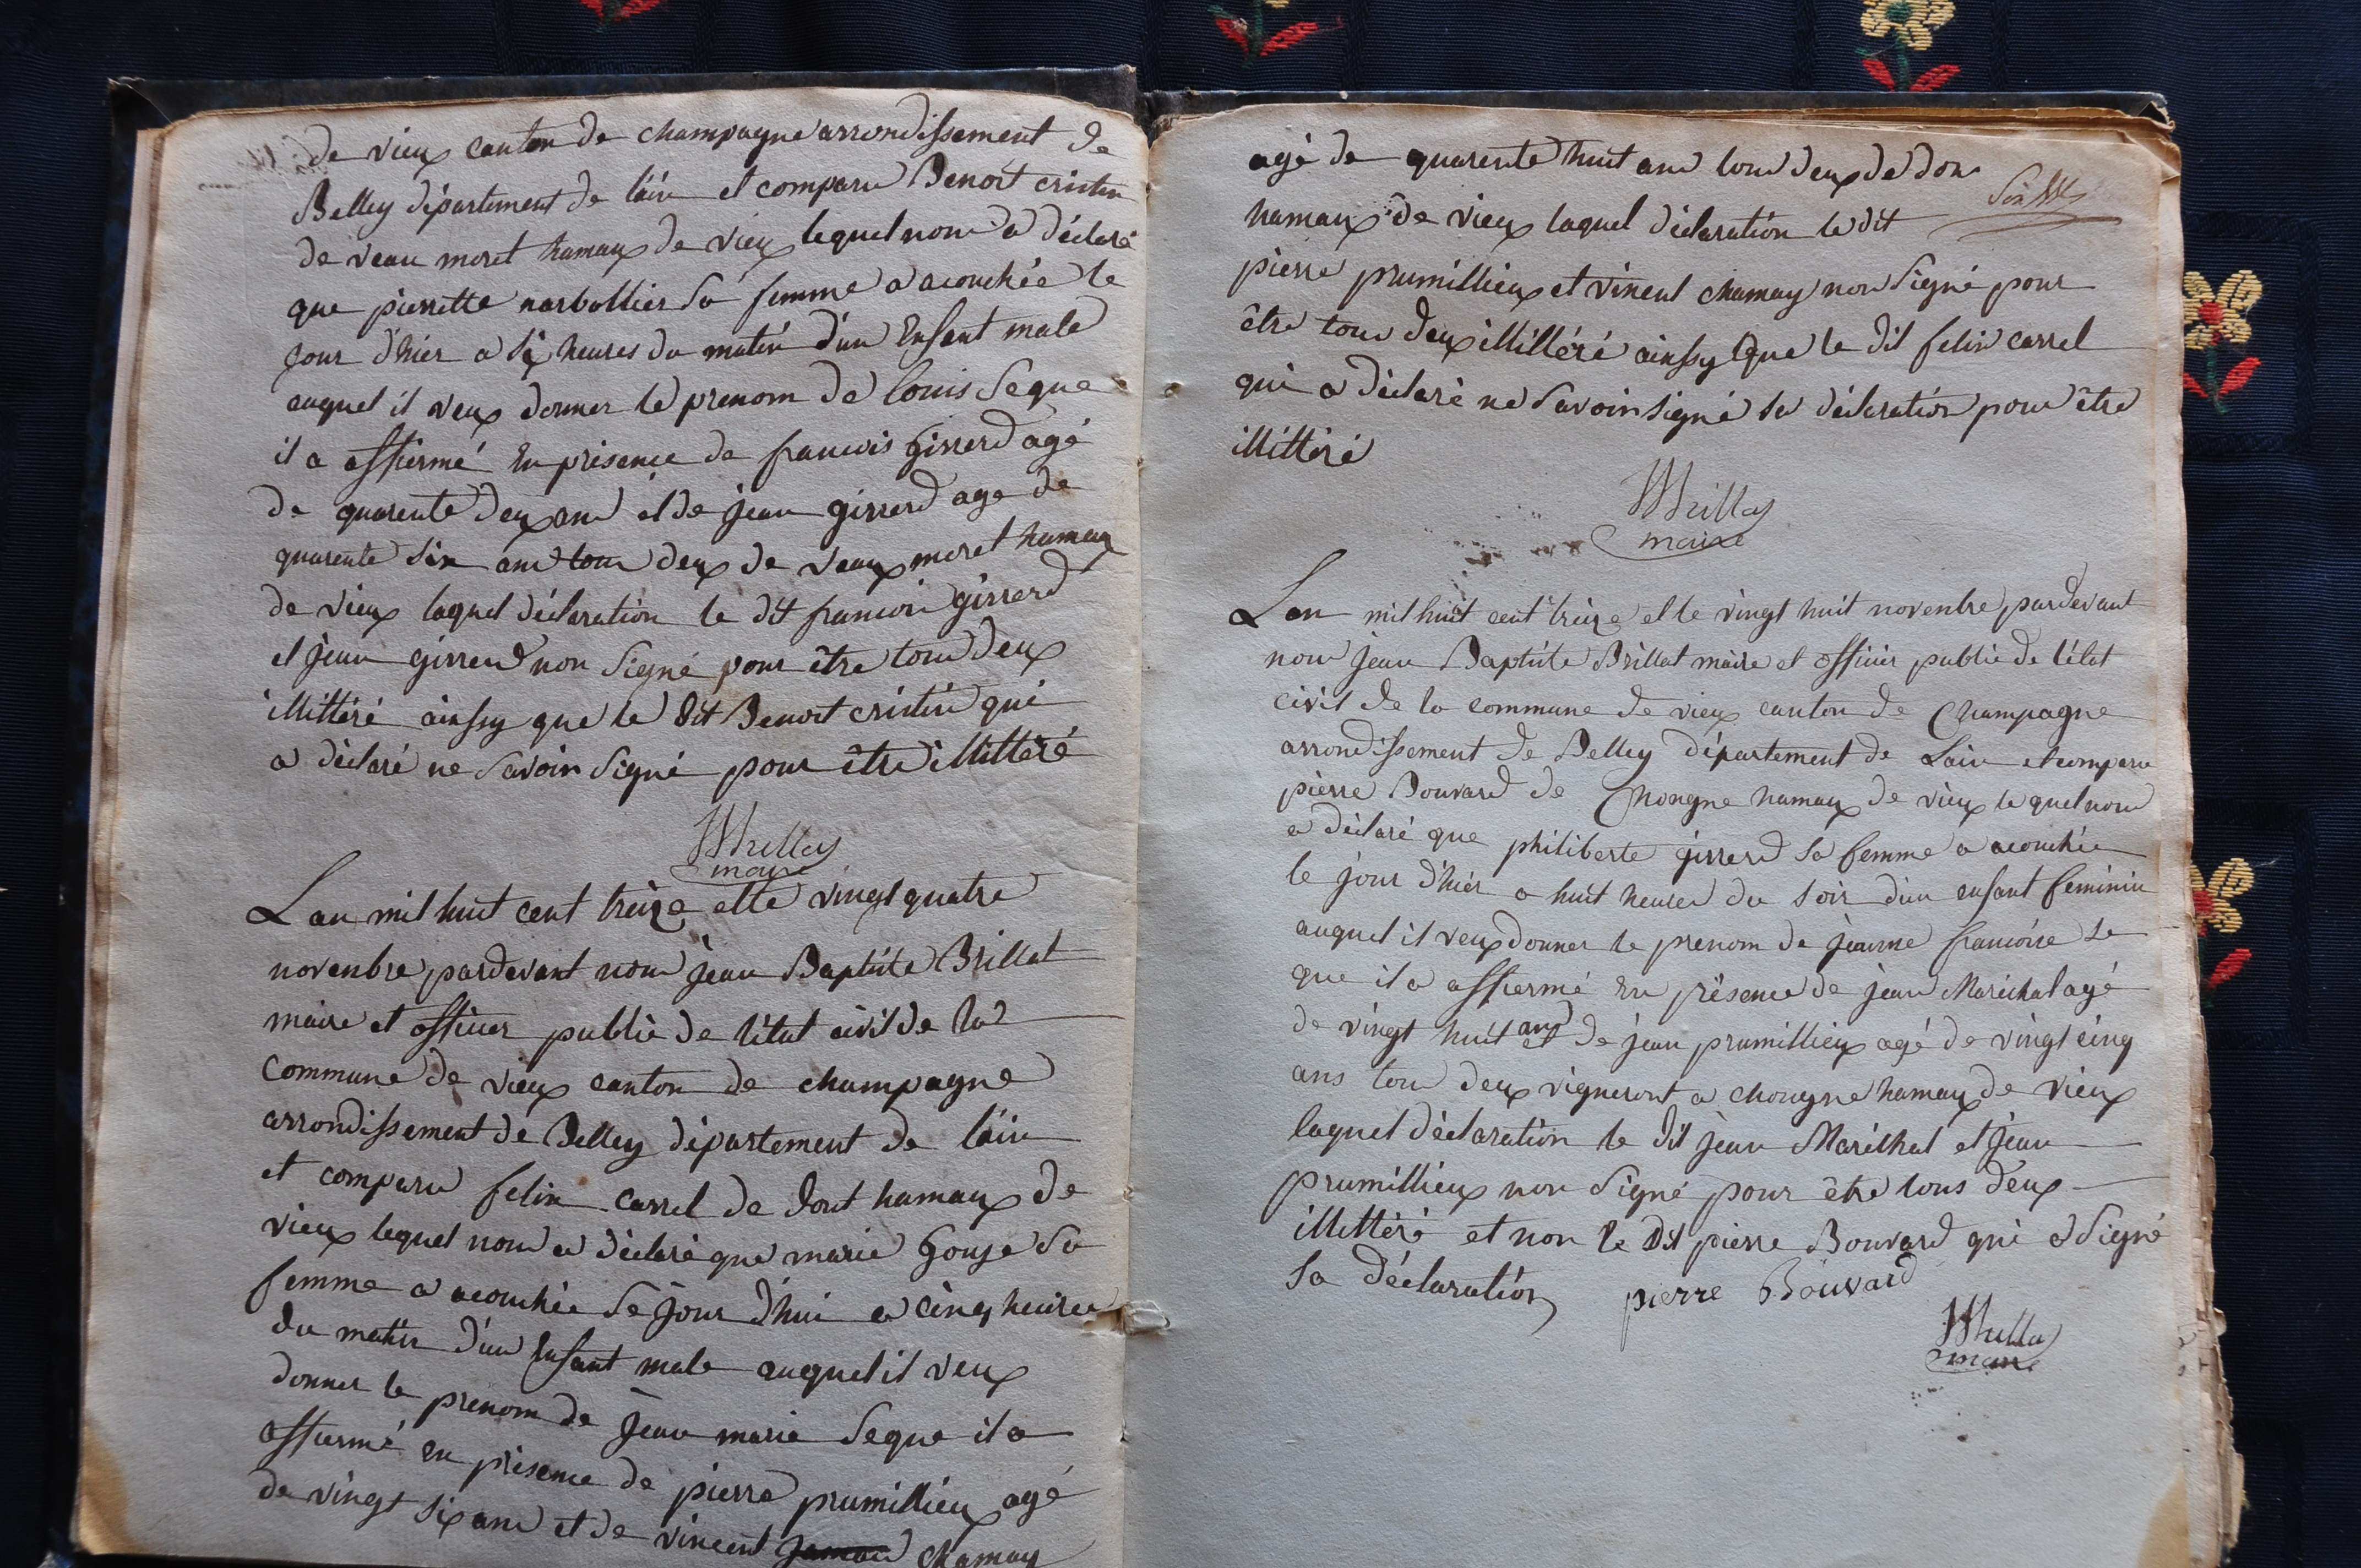 de vieux canton de champagne arrondissement de
Belley département de lain et comparu Benoit cristin
de veau moret hamaux de vieux lequel nous a déclaré
que pierrette narbollier sa femme a acouchée le
jour d'hier a six heures du matin d'un Enfant male
auquel il veux donner le prenom de louis se que
il a affiermé En présence de francois Girrerd agé
de quarente deux ans et de jean girrerd age de
quarente six ans tous deux de veaux moret hamaux
de vieux laquel déclaration le dit francois girrerd
et jean girrerd non signé pour être tous deux
illittéré ainssy que le dit Benoit cristin qui
a déclaré ne savoir signé pour être illittéré
maire
Lan mil huit cent treize et le vingt quatre
novenbre pardevant nous jean Baptiste Brillat
maire et officier public de létat civil de la
commune de vieux canton de champagne
arrondissement de Belley département de lain
et comparu felix carrel de dont hamaux de
vieux lequel nous a déclaré que marie Gouje sa
femme a acouchée se jour d'hui a cinq heures
du matin d'un Enfant male auquel il veux
donner le prenom de jean marie se que il a
affiermé en présence de pierre prumillieux agé
de vingt six ans et de vincent chamay
agé de quarente huit ans tous deux de don
hamaux de vieux laquel déclaration le dit
pierre prumillieux et vincent chamay non signé pour
être tous deux illilléré ainssy que le dit felix carrel
qui a déclaré ne savoir signé sa déclaration pour être
illittéré
maire
Lan mil huit cent treize et le vingt huit novenbre pardevant
nous jean Baptiste Brillat maire et officier public de létat
civil de la commune de vieux canton de Champagne
arrondissement de Belley département de Lain et comparu
pierre Bouvard de Chongne hamaux de vieux lequel nous
a déclaré que philiberte girrerd sa femme a acouchée
le jour d'hier a huit heures du soir d'un enfant feminin
auquel il veux donner le prenom de jeanne francoise se
que il a affiermé En présence de jean Maréchal agé
de vingt huit ans et de jean prumillieux agé de vingt cinq
ans tous deux vigneront a chongne hamaux de vieux
laquel déclaration le dit jean Maréchal et jean
prumillieux non signé pour être tous deux
illittéré et non le dit pierre Bouvard qui a signé
sa déclaration pierre Bouvard
maire